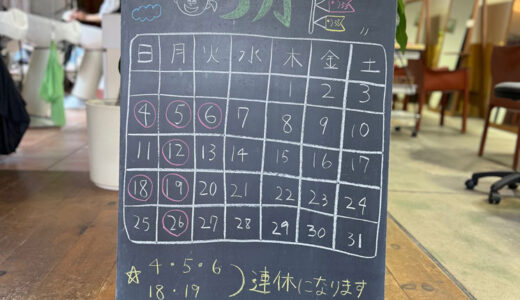 5月
日 月 火 水 木 金 土
1 2 3
4 5 6 7 8 9 10
11 12 13 14 15 16 17
18 19 20 21 22 23 24
25 26 27 28 29 30 31
☆ 4・5・6
18・19 ) 連休になります